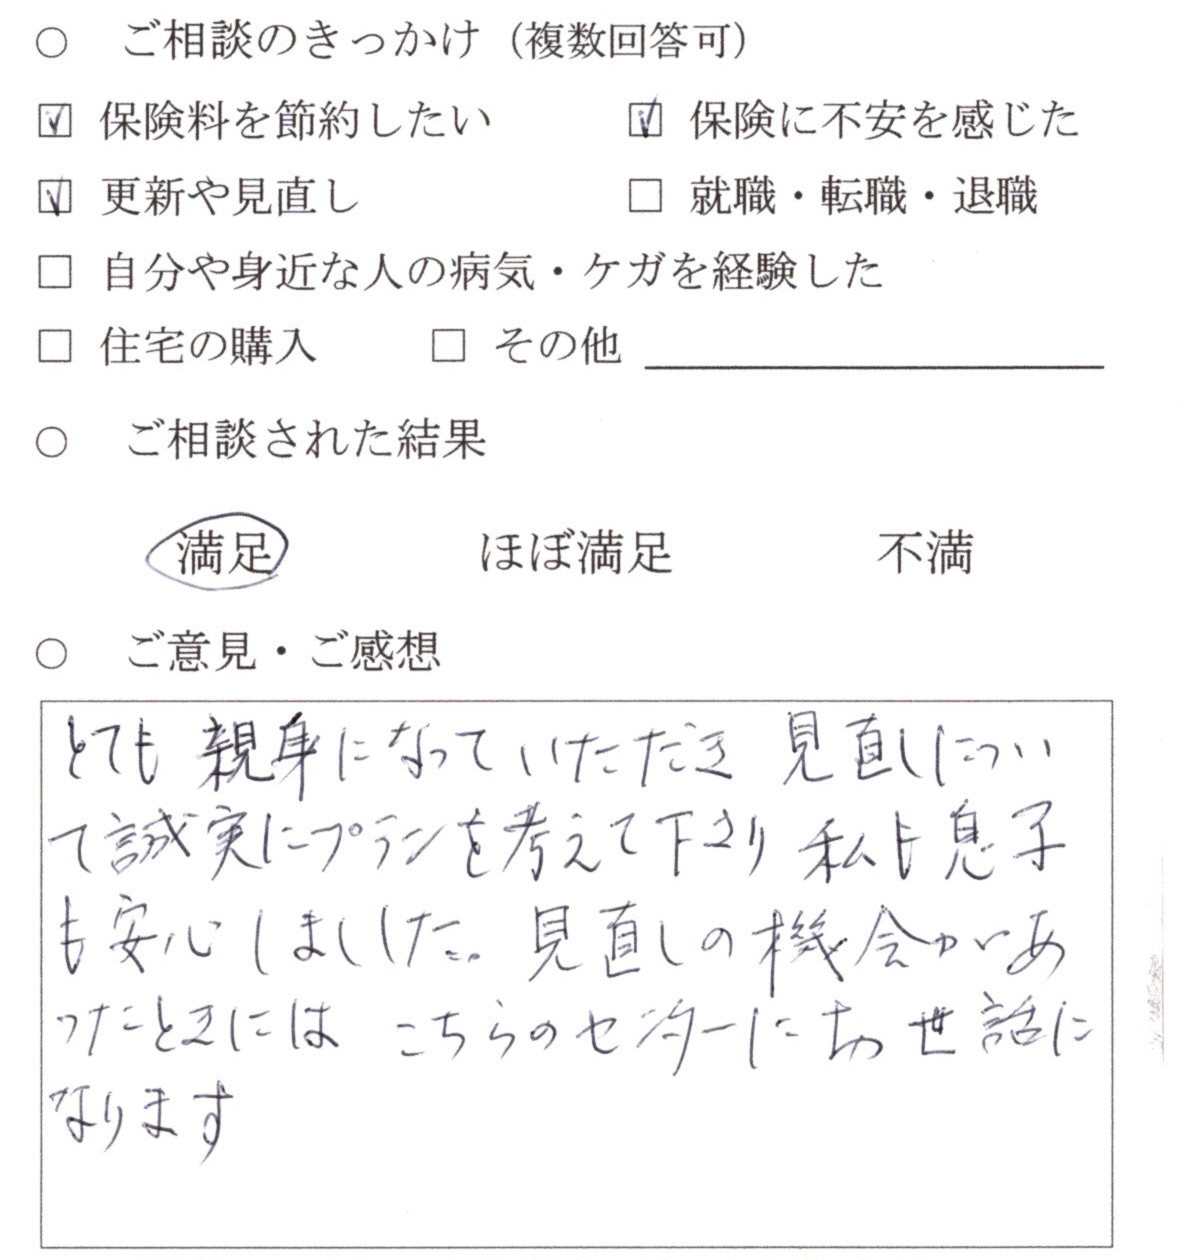 ○ ご相談のきっかけ（複数回答可）
☑ 保険料を節約したい ☑ 保険に不安を感じた
☑ 更新や見直し □ 就職・転職・退職
□ 自分や身近な人の病気・ケガを経験した
□ 住宅の購入 □ その他
○ ご相談された結果
満足 ほぼ満足 不満
○ ご意見・ご感想
とても 親身になっていただき 見直しについ
て誠実にプランを考えて下さり 私も息子
も安心しましした。見直しの機会があ
ったときには こちらのセンターにお世話に
なります